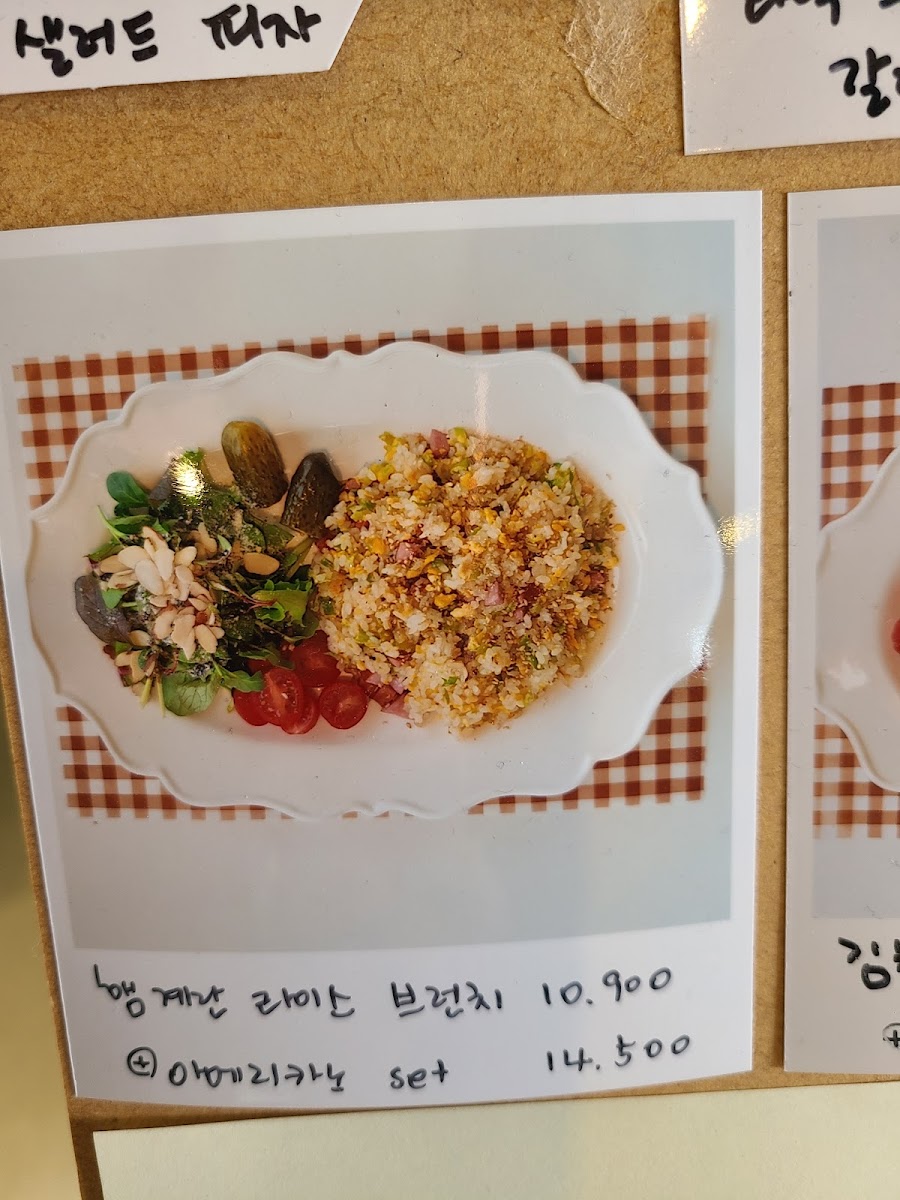 샐러드 피자
햄 계란 라이스 브런치 10.900
⊕아메리카노 set 14.500